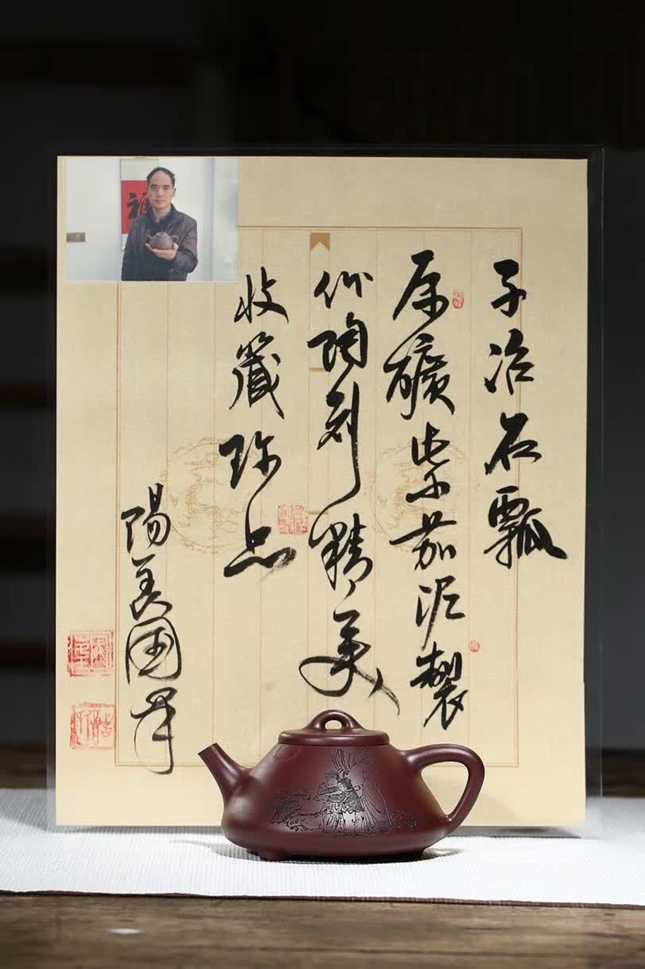 子冶石瓢
原礦紫茄泥製
陶刻精美
收藏珍品
陽羨國